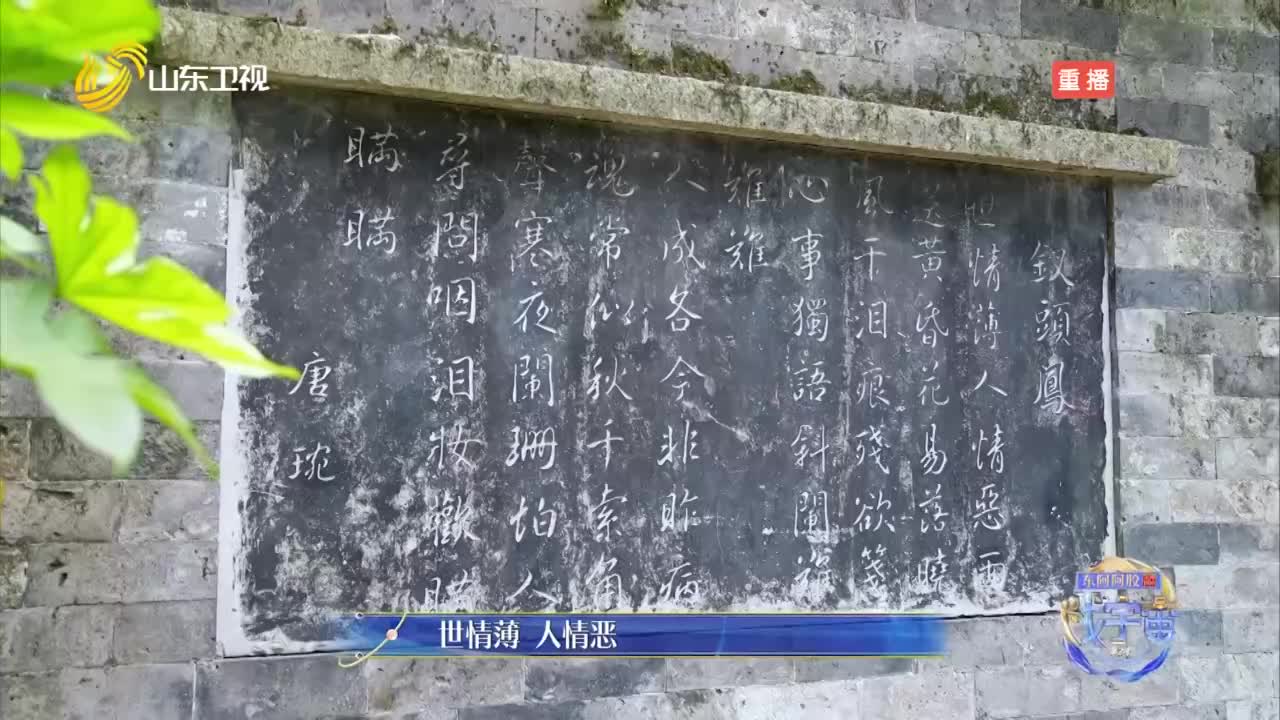 山东卫视
重播
釵頭鳳
世情薄人情惡雨
送黃昏花易落曉
風干泪痕殘欲箋
心事獨語斜闌難
難難
人成各今非昨病
魂常似秋千索角
聲寒夜闌珊怕人
尋問咽泪妝歡瞞
瞞瞞
唐琬
东阿阿胶
世情薄 人情恶